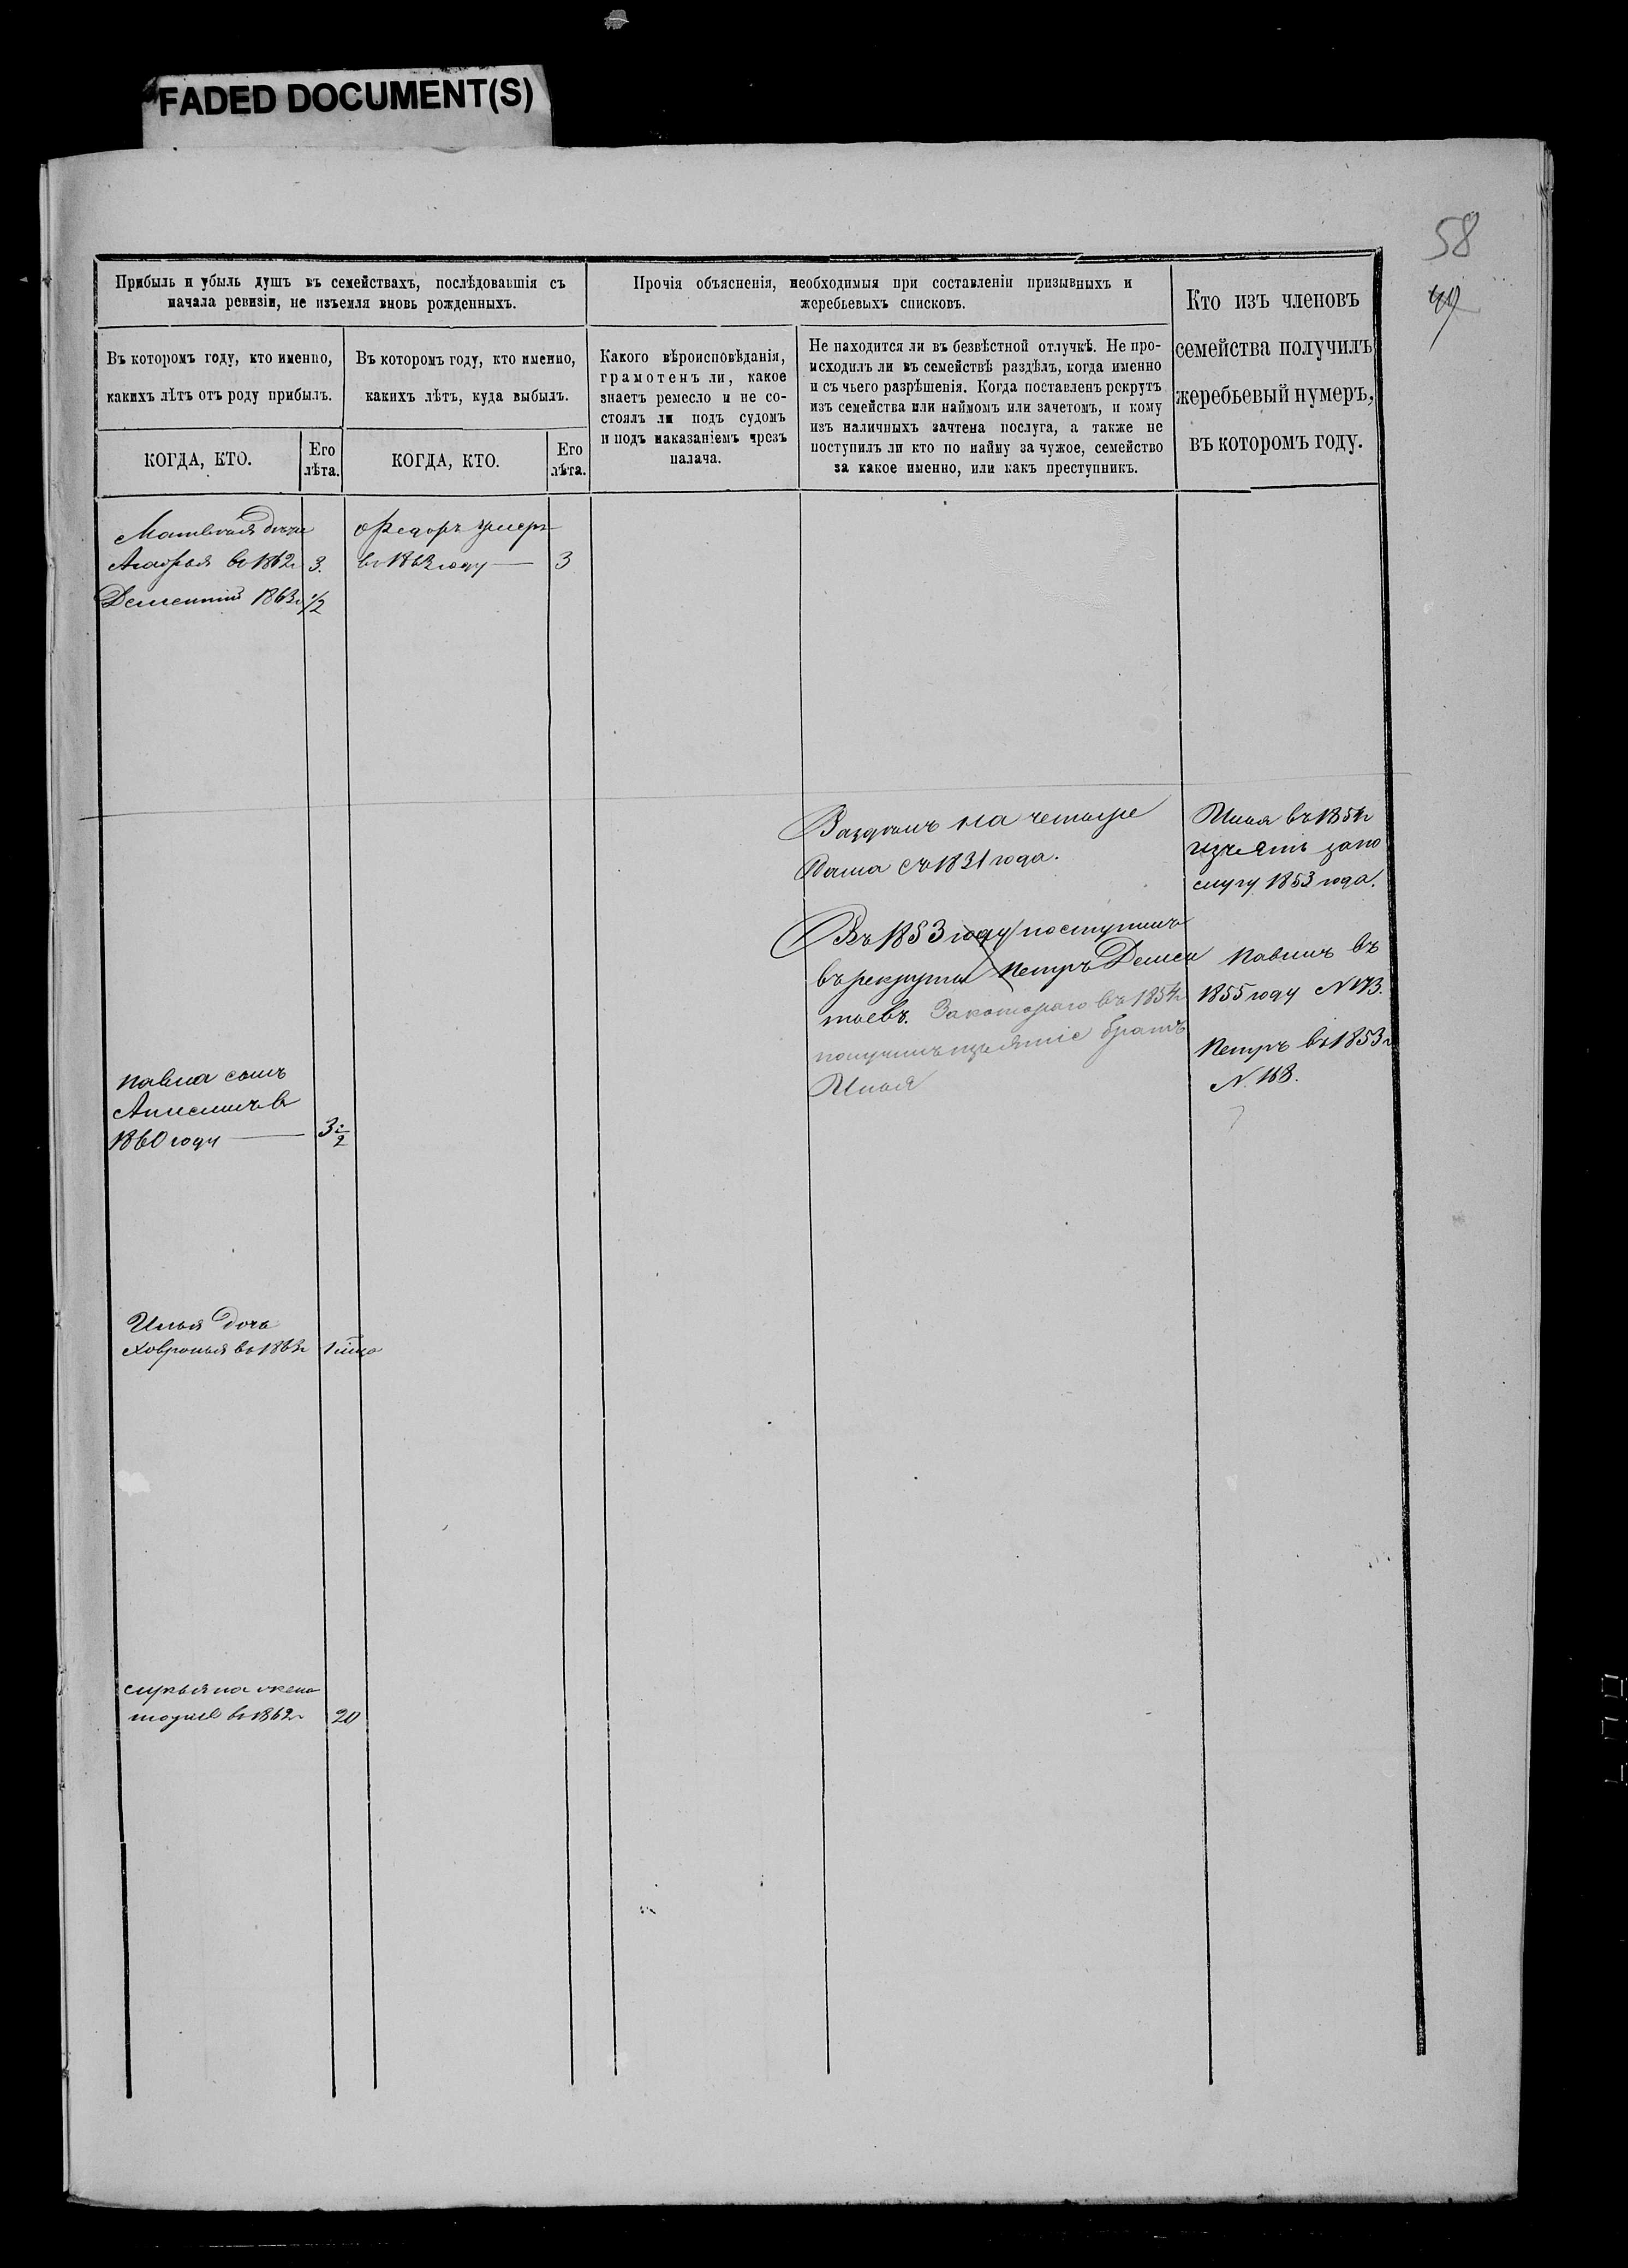 FADED DOCUMENT(S)
58
Прибыль и убыль душъ въ семействахъ, послѣдовавшія съ
начала ревизіи, не изъемля вновь рожденныхъ.
Въ которомъ году, кто именно,
какихъ лѣтъ отъ роду прибылъ.
КОГДА, КТО.
Его
лѣта.
Въ которомъ году, кто именно,
какихъ лѣтъ, куда выбылъ.
КОГДА, КТО.
Его
лѣта.
Прочія объясненія, необходимыя при составленіи призывныхъ и
жеребьевыхъ списковъ.
Какого вѣроисповѣданія,
грамотенъ ли, какое
знаетъ ремесло и не со-
стоялъ ли подъ судомъ
и подъ наказаніемъ чрезъ
палача.
Не находится ли въ безвѣстной отлучкѣ. Не про-
исходилъ ли въ семействѣ раздѣлъ, когда именно
и съ чьего разрѣшенія. Когда поставленъ рекрутъ
изъ семейства или наймомъ или зачетомъ, и кому
изъ наличныхъ зачтена послуга, а также не
поступилъ ли кто по найму за чужое, семейство
за какое именно, или какъ преступникъ.
Кто изъ членовъ
семейства получилъ
жеребьевый нумеръ,
въ которомъ году.
дочь
въ 1862 3.
1863 1/2
Федоръ умеръ
въ 1862 году — 3
Раздѣлъ на четыре
съ 1831 года.
Въ 1853 году поступилъ
въ рекруты Петръ Демен
тьевъ. За котораго въ 1854
получилъ изъятіе братъ
Илья
Илья въ 1854
изъятъ запо
слугу 1853 года.
Павелъ въ
1855 году N 173.
Петръ въ 1853
N. 168.
Павла сынъ
1860 году — 3 1/2
Илья дочь
Ховронья въ 1863
жена
въ 1862 20